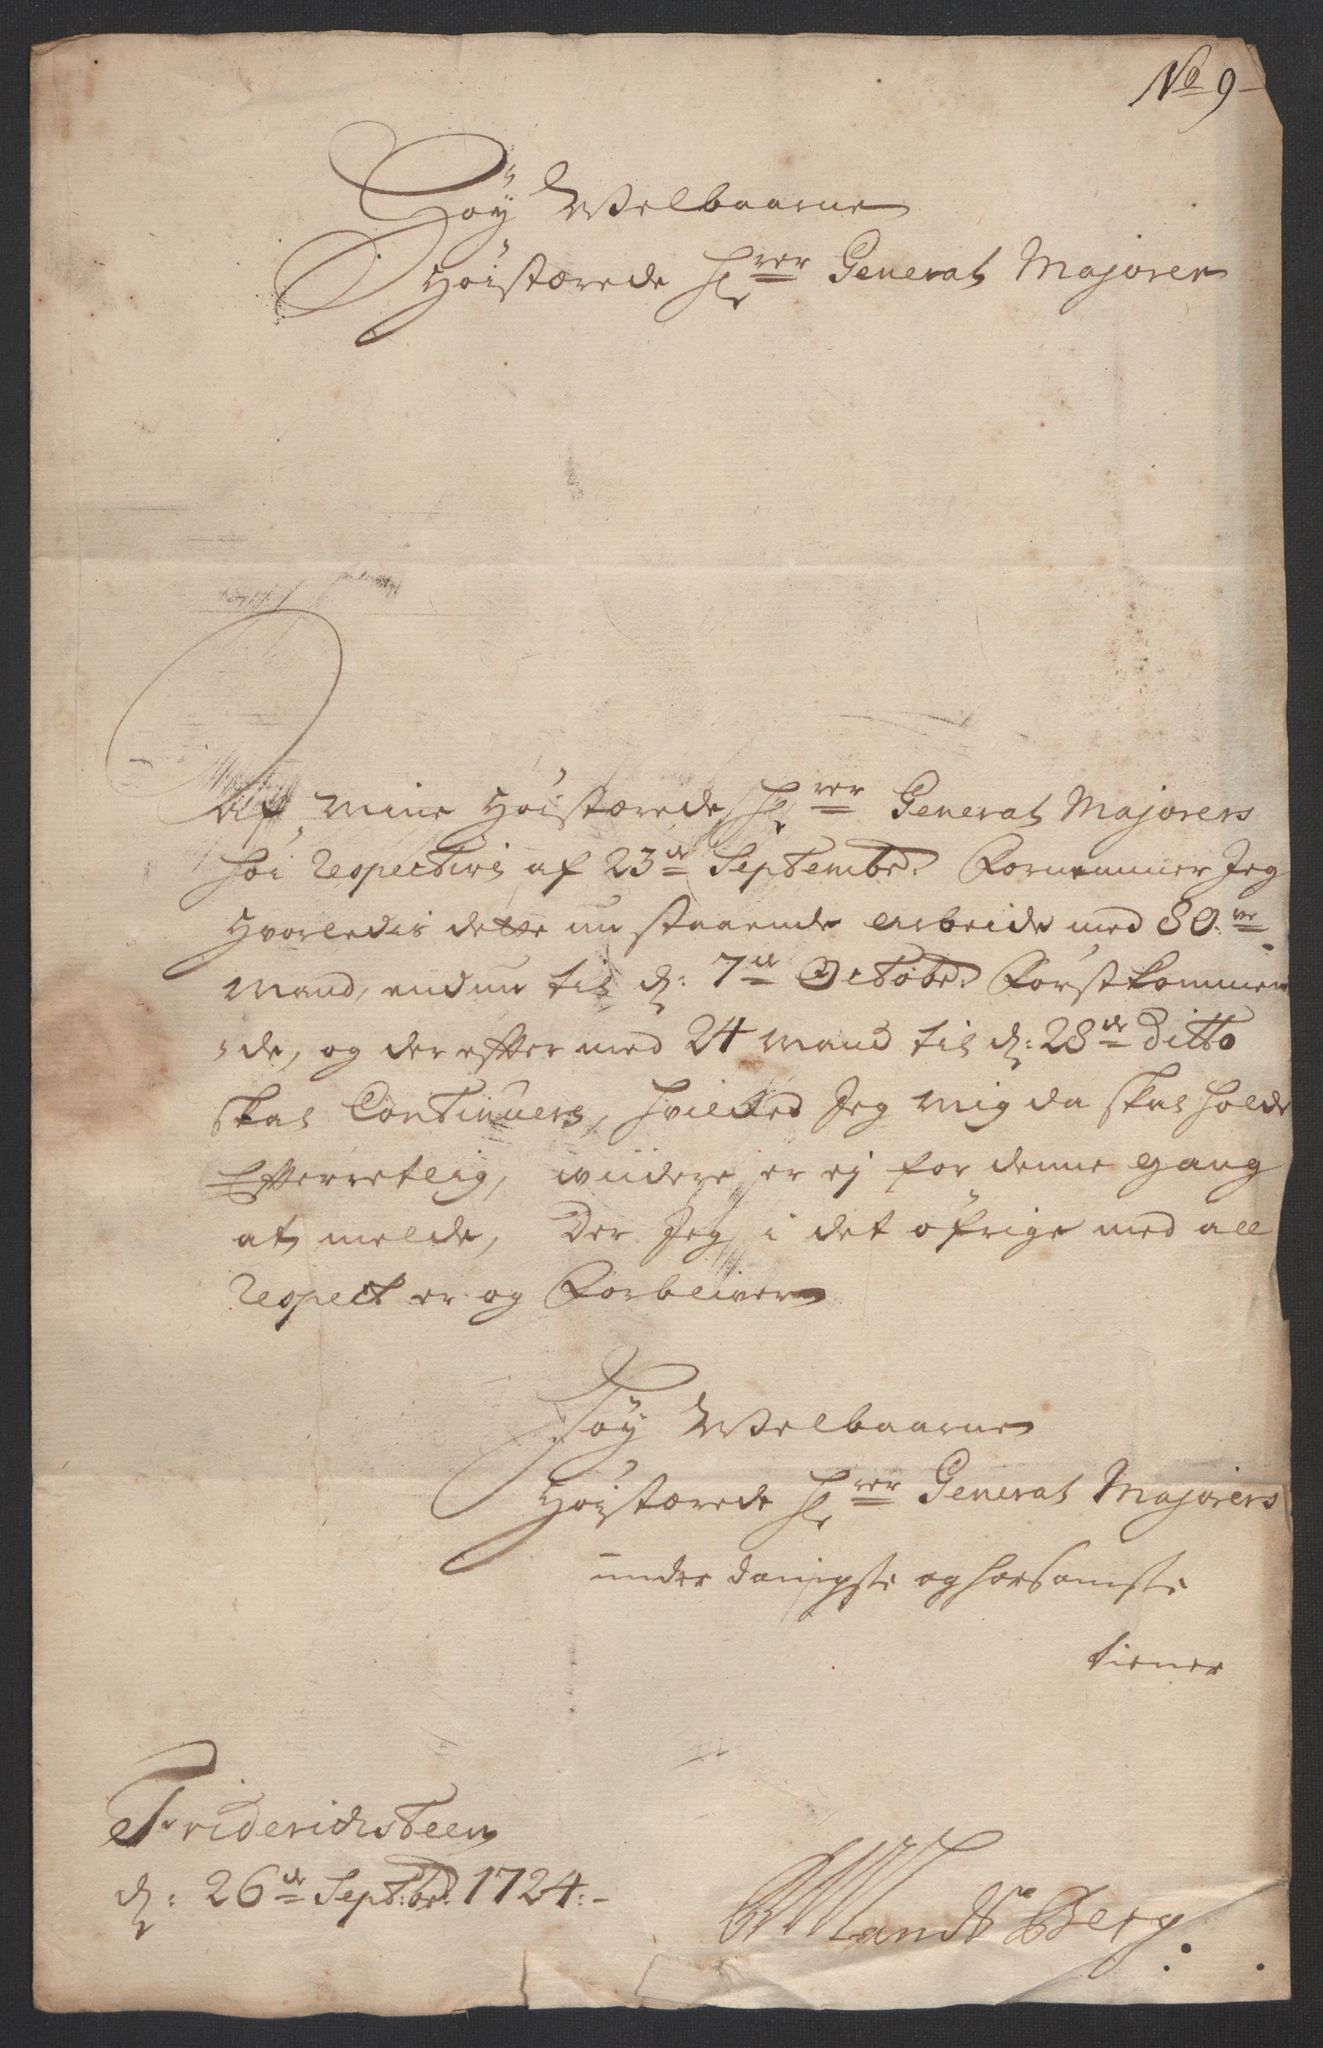 No 9
Høy Welbaarne
Høistærede Hr rer General Majoren
Af mine Høistærede Hr rer General Majorers
høi respective af 23de Septembr. Fornemmer Jeg
Hvorledis dette nu staaende Arbeide med 80:ve
Mand, endnu til d: 7de Octobr. Førstkommen
de, og der efter med 24 Mand til d: 28de Ditto
skal Continuers, hvilcked Jeg mig da skal holde
Efterretlig, widere er ej for denne gang
at melde, Der Jeg i det öfrige med all
respect er og Forbliver
Høy Welbaarne
Høistærede Hr rer General Majorers
under danigste og horsamste
tiener
Friderichsteen
d: 26de Septbr. 1724:-
Landtberg.